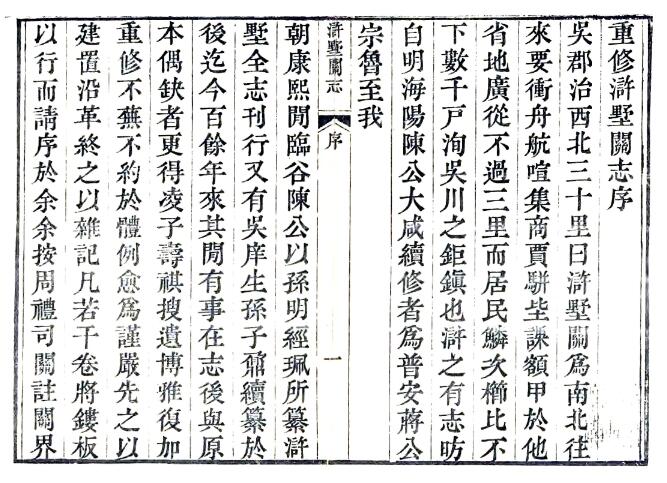 重修滸墅關志序
吳郡治西北三十里曰滸墅關為南北往
來要衝舟航喧集商賈駢坒課額甲於他
省地廣從不過三里而居民鱗次櫛比不
下數千戶洵吳川之鉅鎮也滸之有志昉
自明海陽陳公大咸續修者為普安蔣公
宗魯至我
滸墅關志
序
一
朝康熙閒臨谷陳公以孫明經珮所纂滸
墅全志刊行又有吳庠生孫子鼐續纂於
後迄今百餘年來其閒有事在志後與原
本偶缺者更得凌子壽祺搜遺博雅復加
重修不蕪不約於體例愈為謹嚴先之以
建置沿革終之以雜記凡若干卷將鏤板
以行而請序於余余按周禮司關註關界